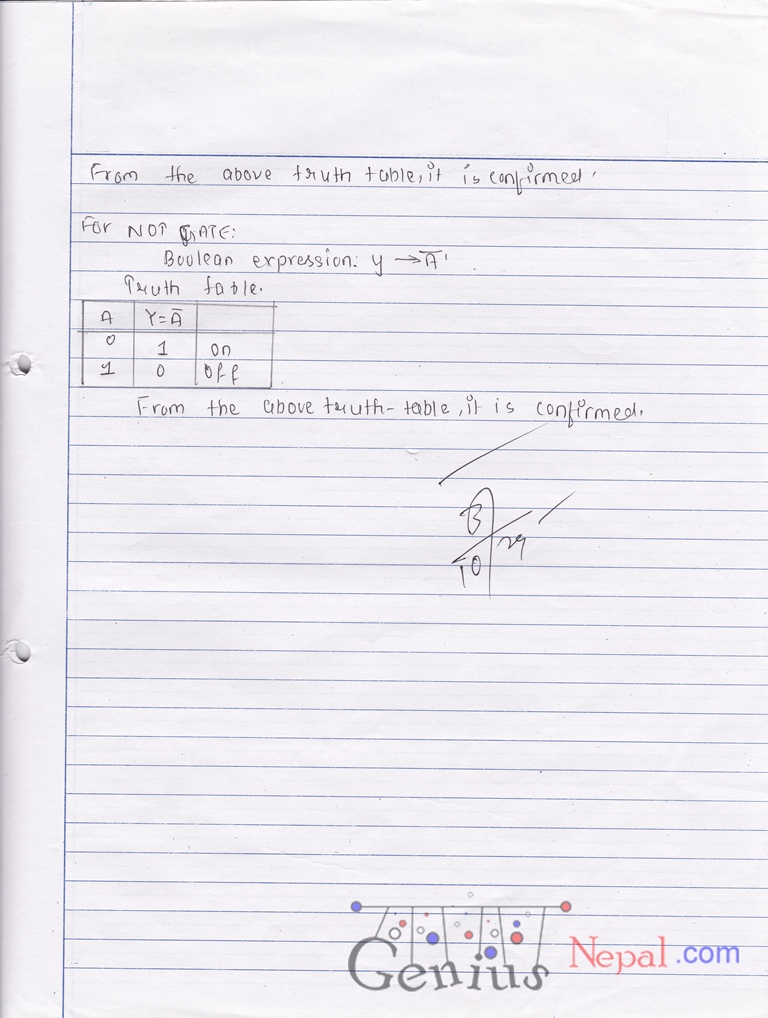 From the above truth table, it is confirmed.
For NOT GATE:
Boolean expression: y → A̅'
Truth table.
A Y=A̅
0 1 on
1 0 off
From the above truth-table, it is confirmed.
10
Genius Nepal.com